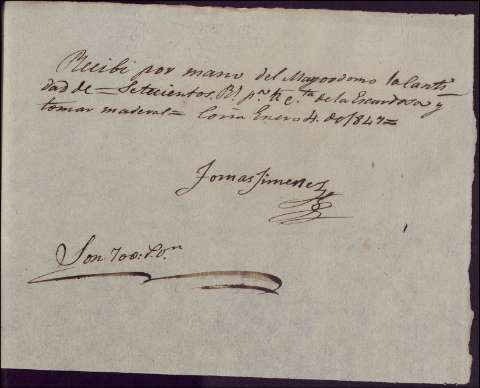 Recibi por mano del Mayordomo la Canti
dad de = Setecientos. Rs. pr. de la y
tomar maderal = Coria Enero 4. de 1847 =
Tomas Jimenez
Son 700: Rs. Vn